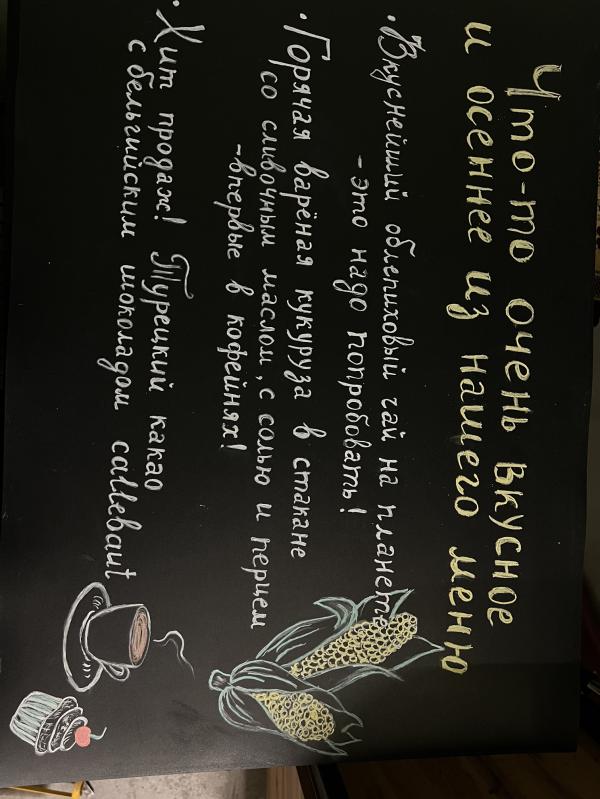 Что-то очень вкусное
и осеннее из нашего меню
· Вкуснейший облепиховый чай на планете
- это надо попробовать!
· Горячая варёная кукуруза в стакане
со сливочным маслом, с солью и перцем
- впервые в кофейнях!
· Хит продаж! Турецкий какао
с бельгийским шоколадом callebaut